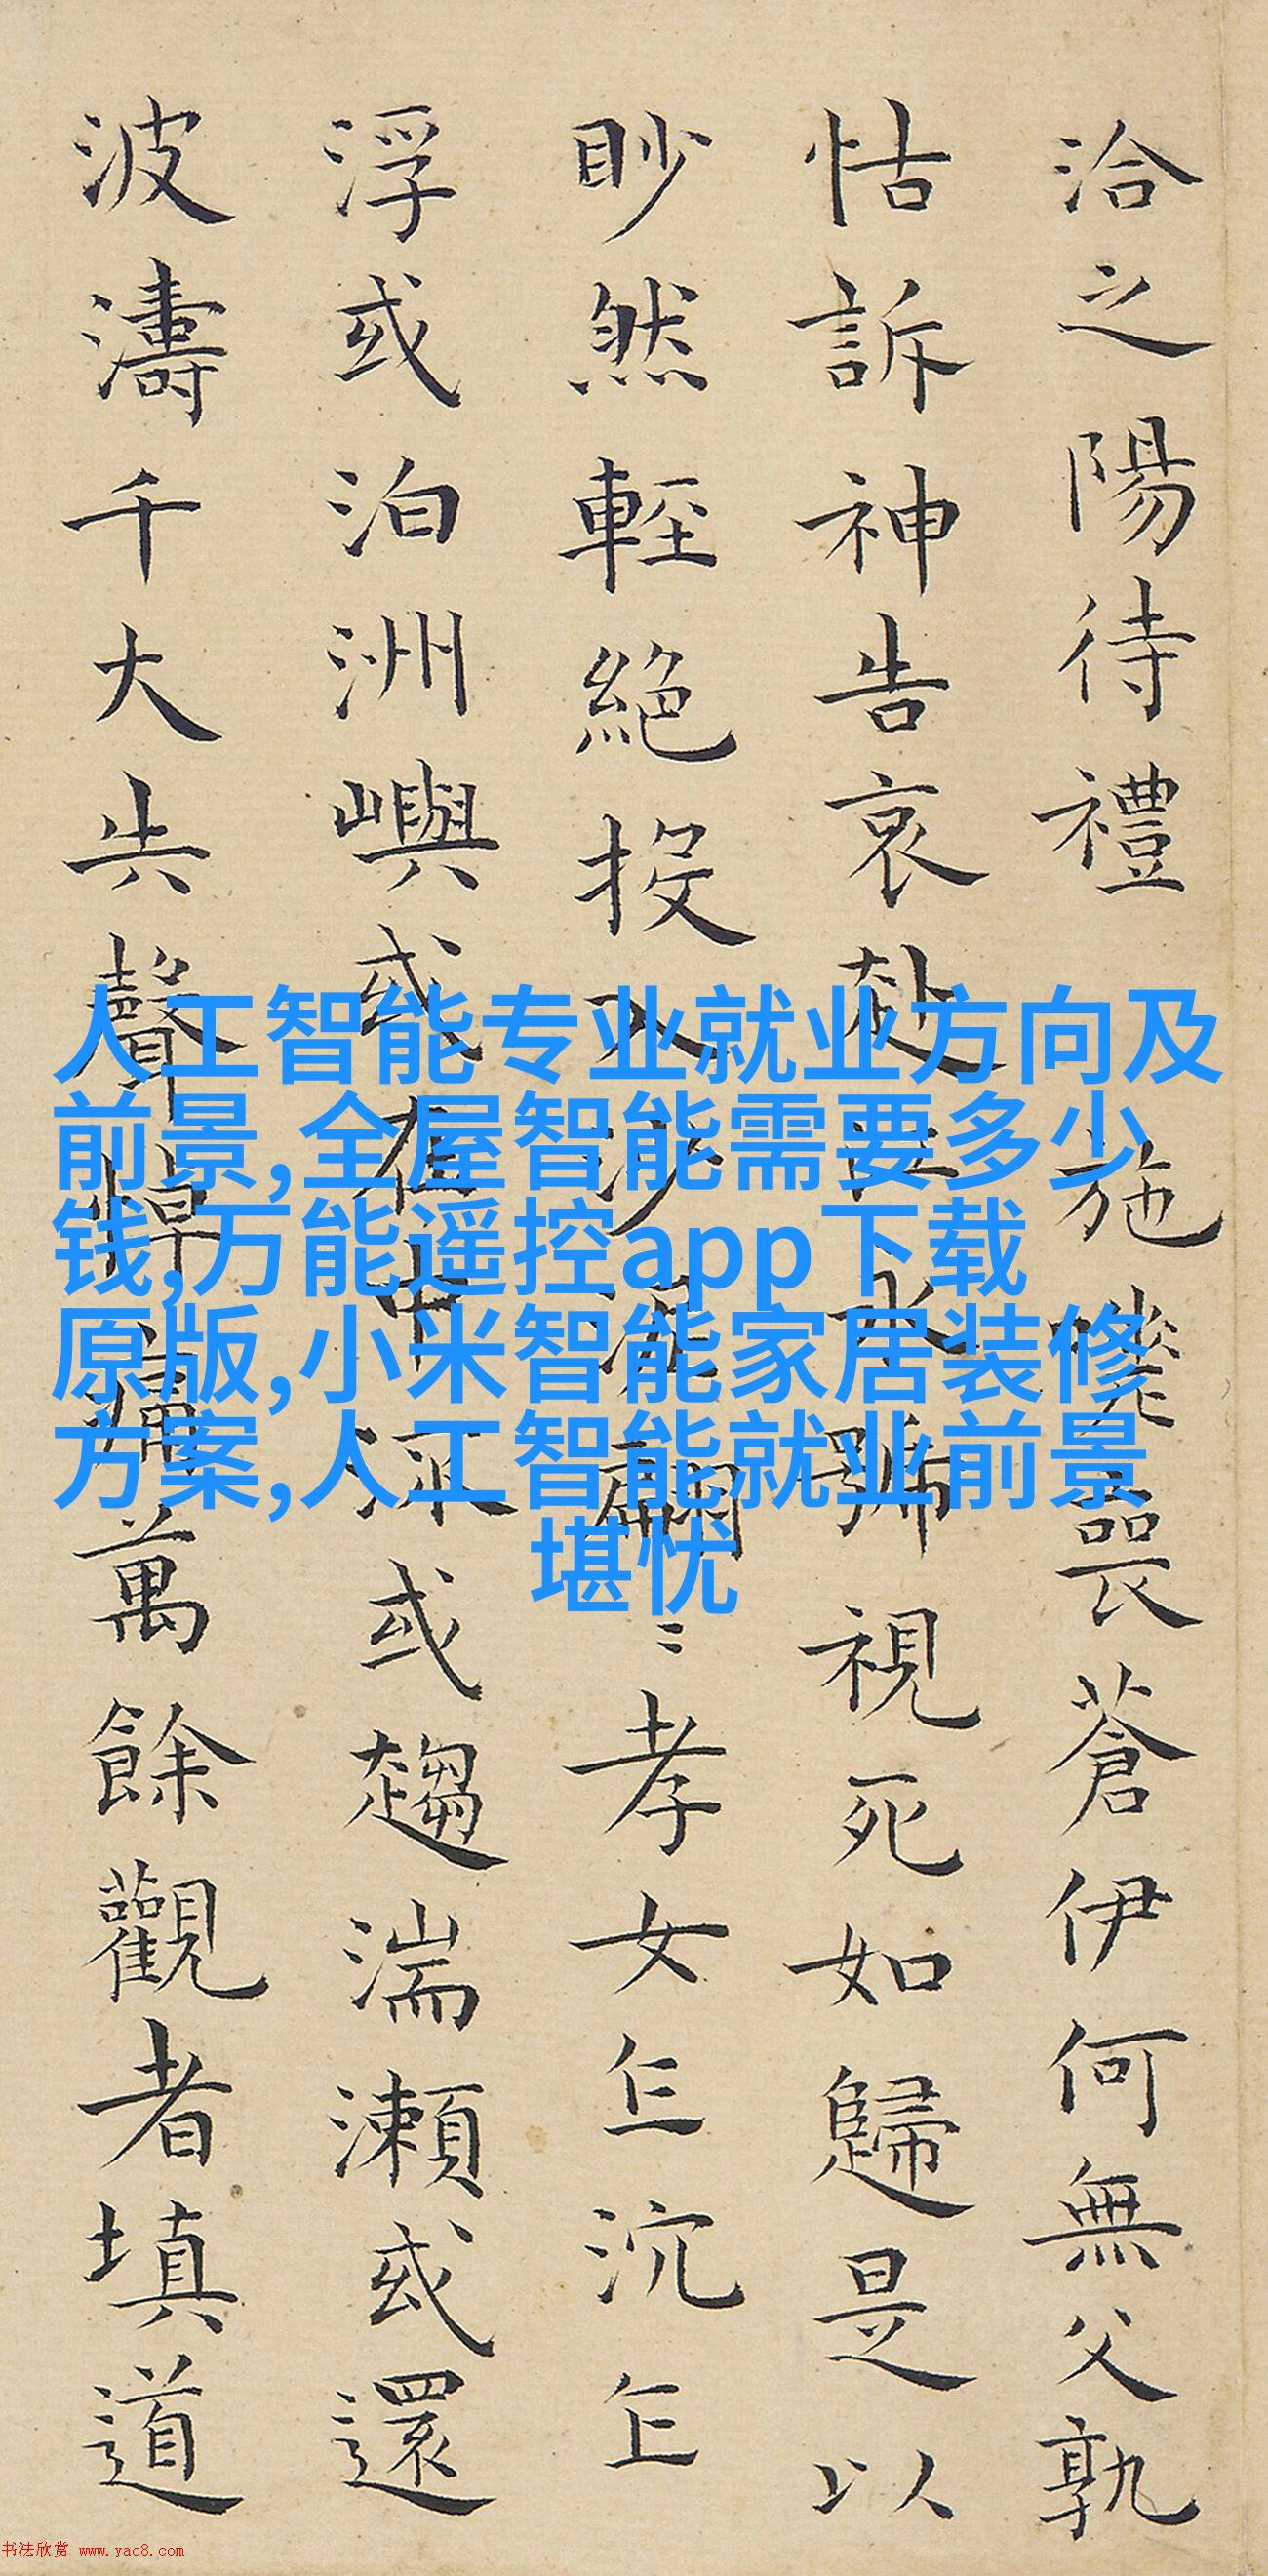 洽之陽待禮施嗟喪蒼伊何無父孰
怙訴神告哀赴江永號視死如歸是以
眇然輕絕投入沙泥翩〻孝女乍沉乍
浮或泊洲嶼或在中流或趨湍瀨或還
波濤千大失聲悼痛萬餘觀者填道
人工智能专业就业方向及
前景,全屋智能需要多少
钱,万能遥控app下载
原版,小米智能家居装修
方案,人工智能就业前景
堪忧
书法欣赏 www.yac8.com